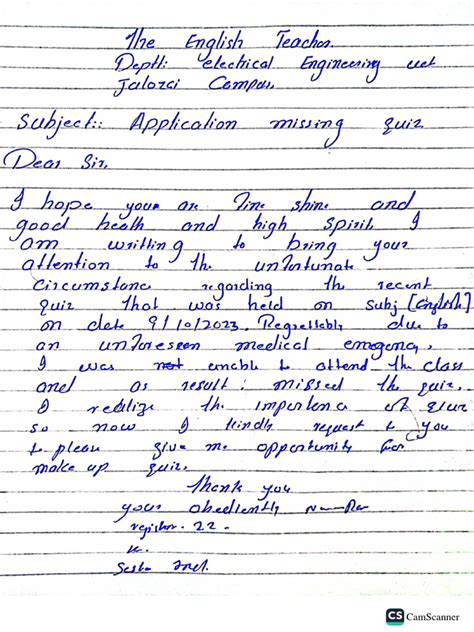 The English Teacher.
Deptt: electrical Engineering uet
Jalozai Campus.
Subject:: Application missing quiz
Dear Sir.
I hope your are fine shine and
good health and high spirit, I
am writting to bring your
attention to the unfortunate
circumstance regording the recent
quiz that was held on Subj [English]
on date 9/10/2023. Regrettably due to
an unforeseen medical emegency,
I was unable to attend the class
and as result: missed the quiz.
I realize the importence of
so now I kindly request to you
to please give me opportunity for
make up quiz.
Thank you
your obediently
register. 22-
CS CamScanner